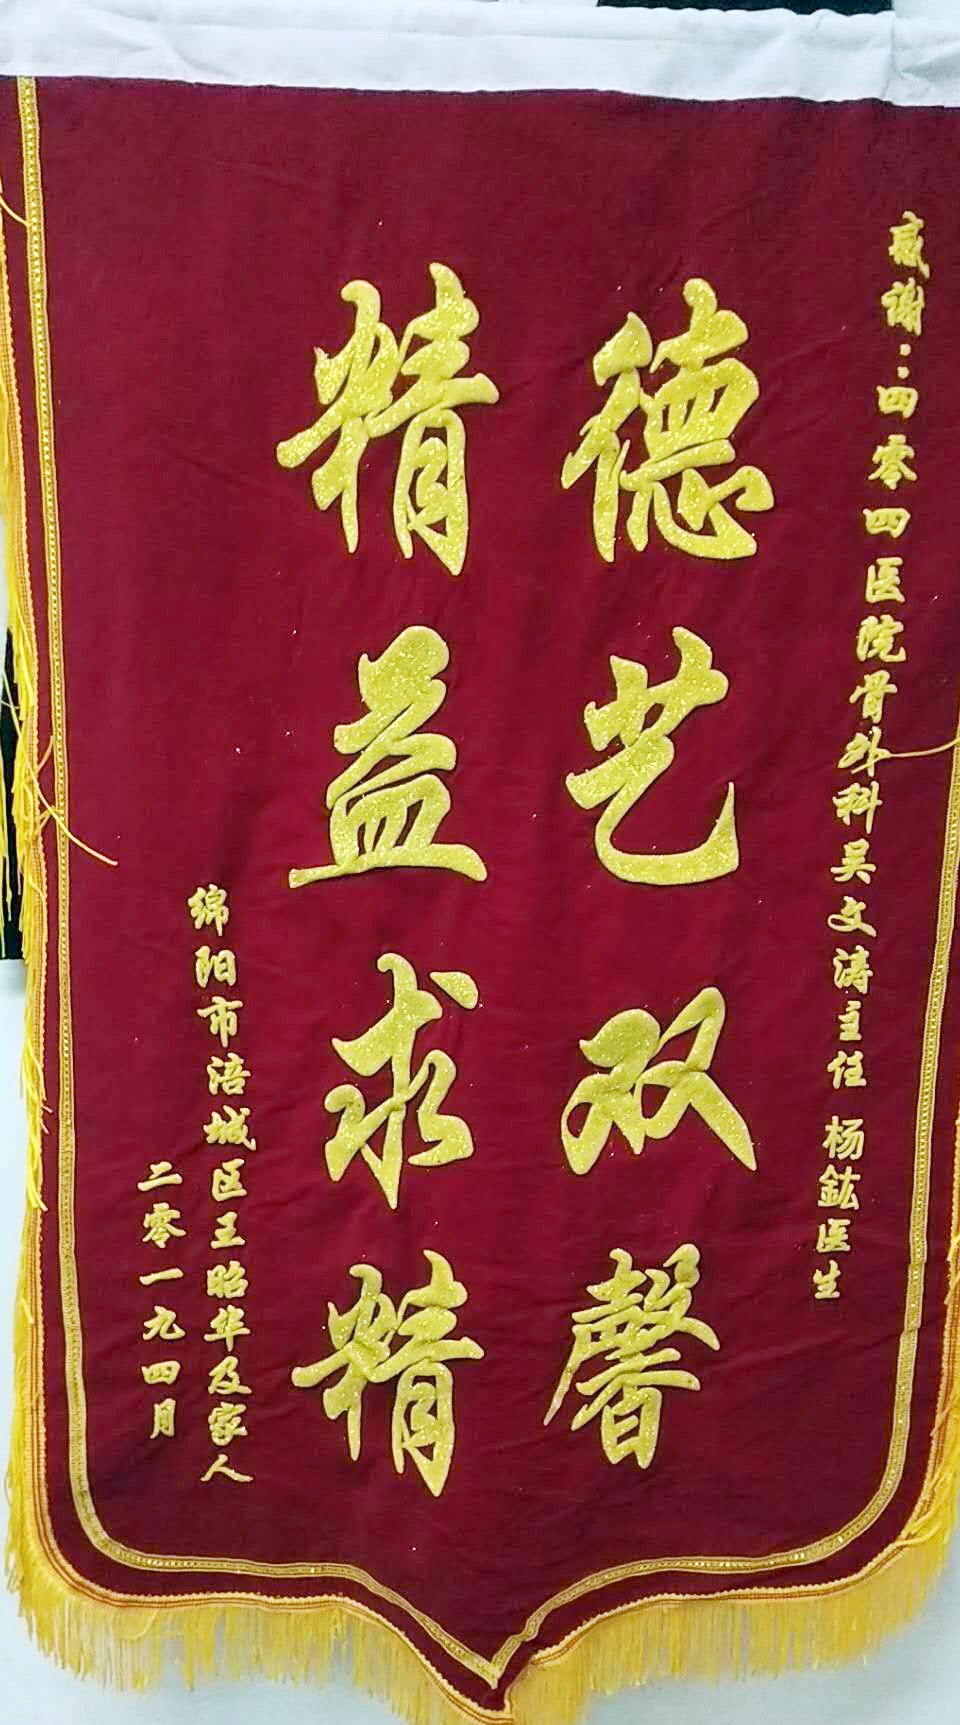 感谢：四零四医院骨外科吴文涛主任 杨鈜医生
德艺双馨
精益求精
绵阳市涪城区王昭华及家人
二零一九四月